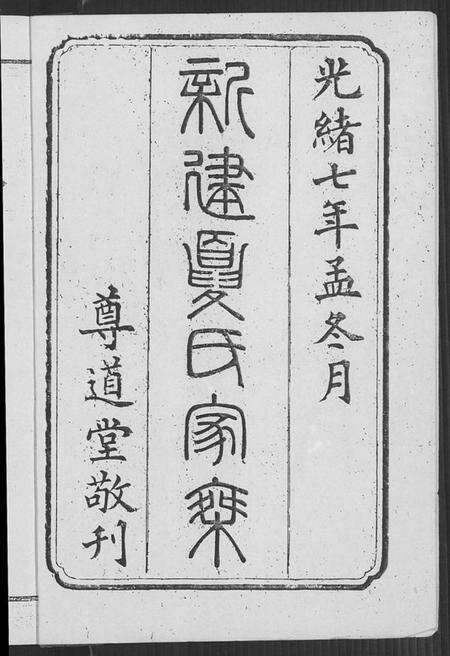 光緒七年孟冬月
新建夏氏家乘
尊道堂敬刊